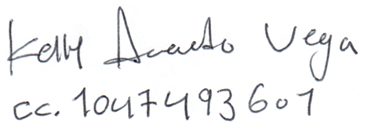 Kelly Acevedo Vega
cc. 1047493601